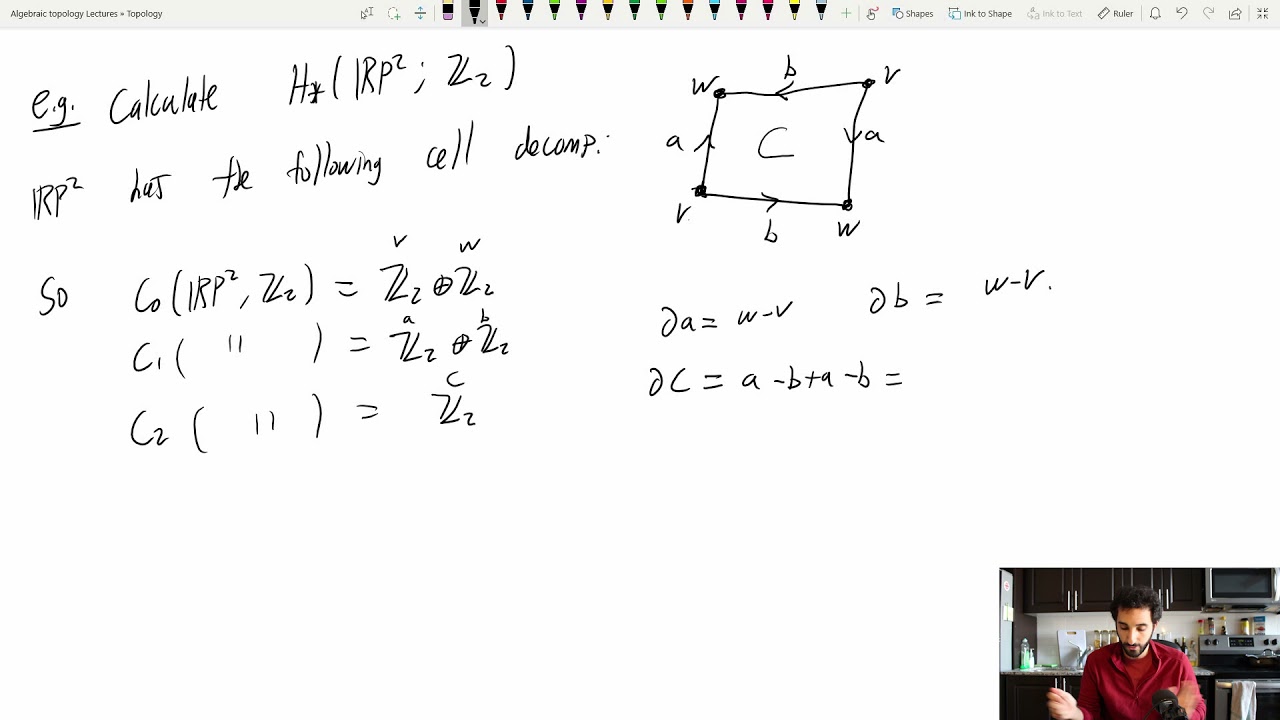 Algebraic topology Lectures » Topology
Shapes Ink to Shape Ink to Text Ruler
e.g. Calculate H*(RP²; ℤ₂)
RP² has the following cell decomp:
w b v
a C a
v b w
So C₀(RP², ℤ₂) = ℤ₂ ⊕ ℤ₂
v w
C₁( " ) = ℤ₂ ⊕ ℤ₂
a b
C₂( " ) = ℤ₂
C
∂a = w-v ∂b = w-v.
∂C = a -b+a -b =